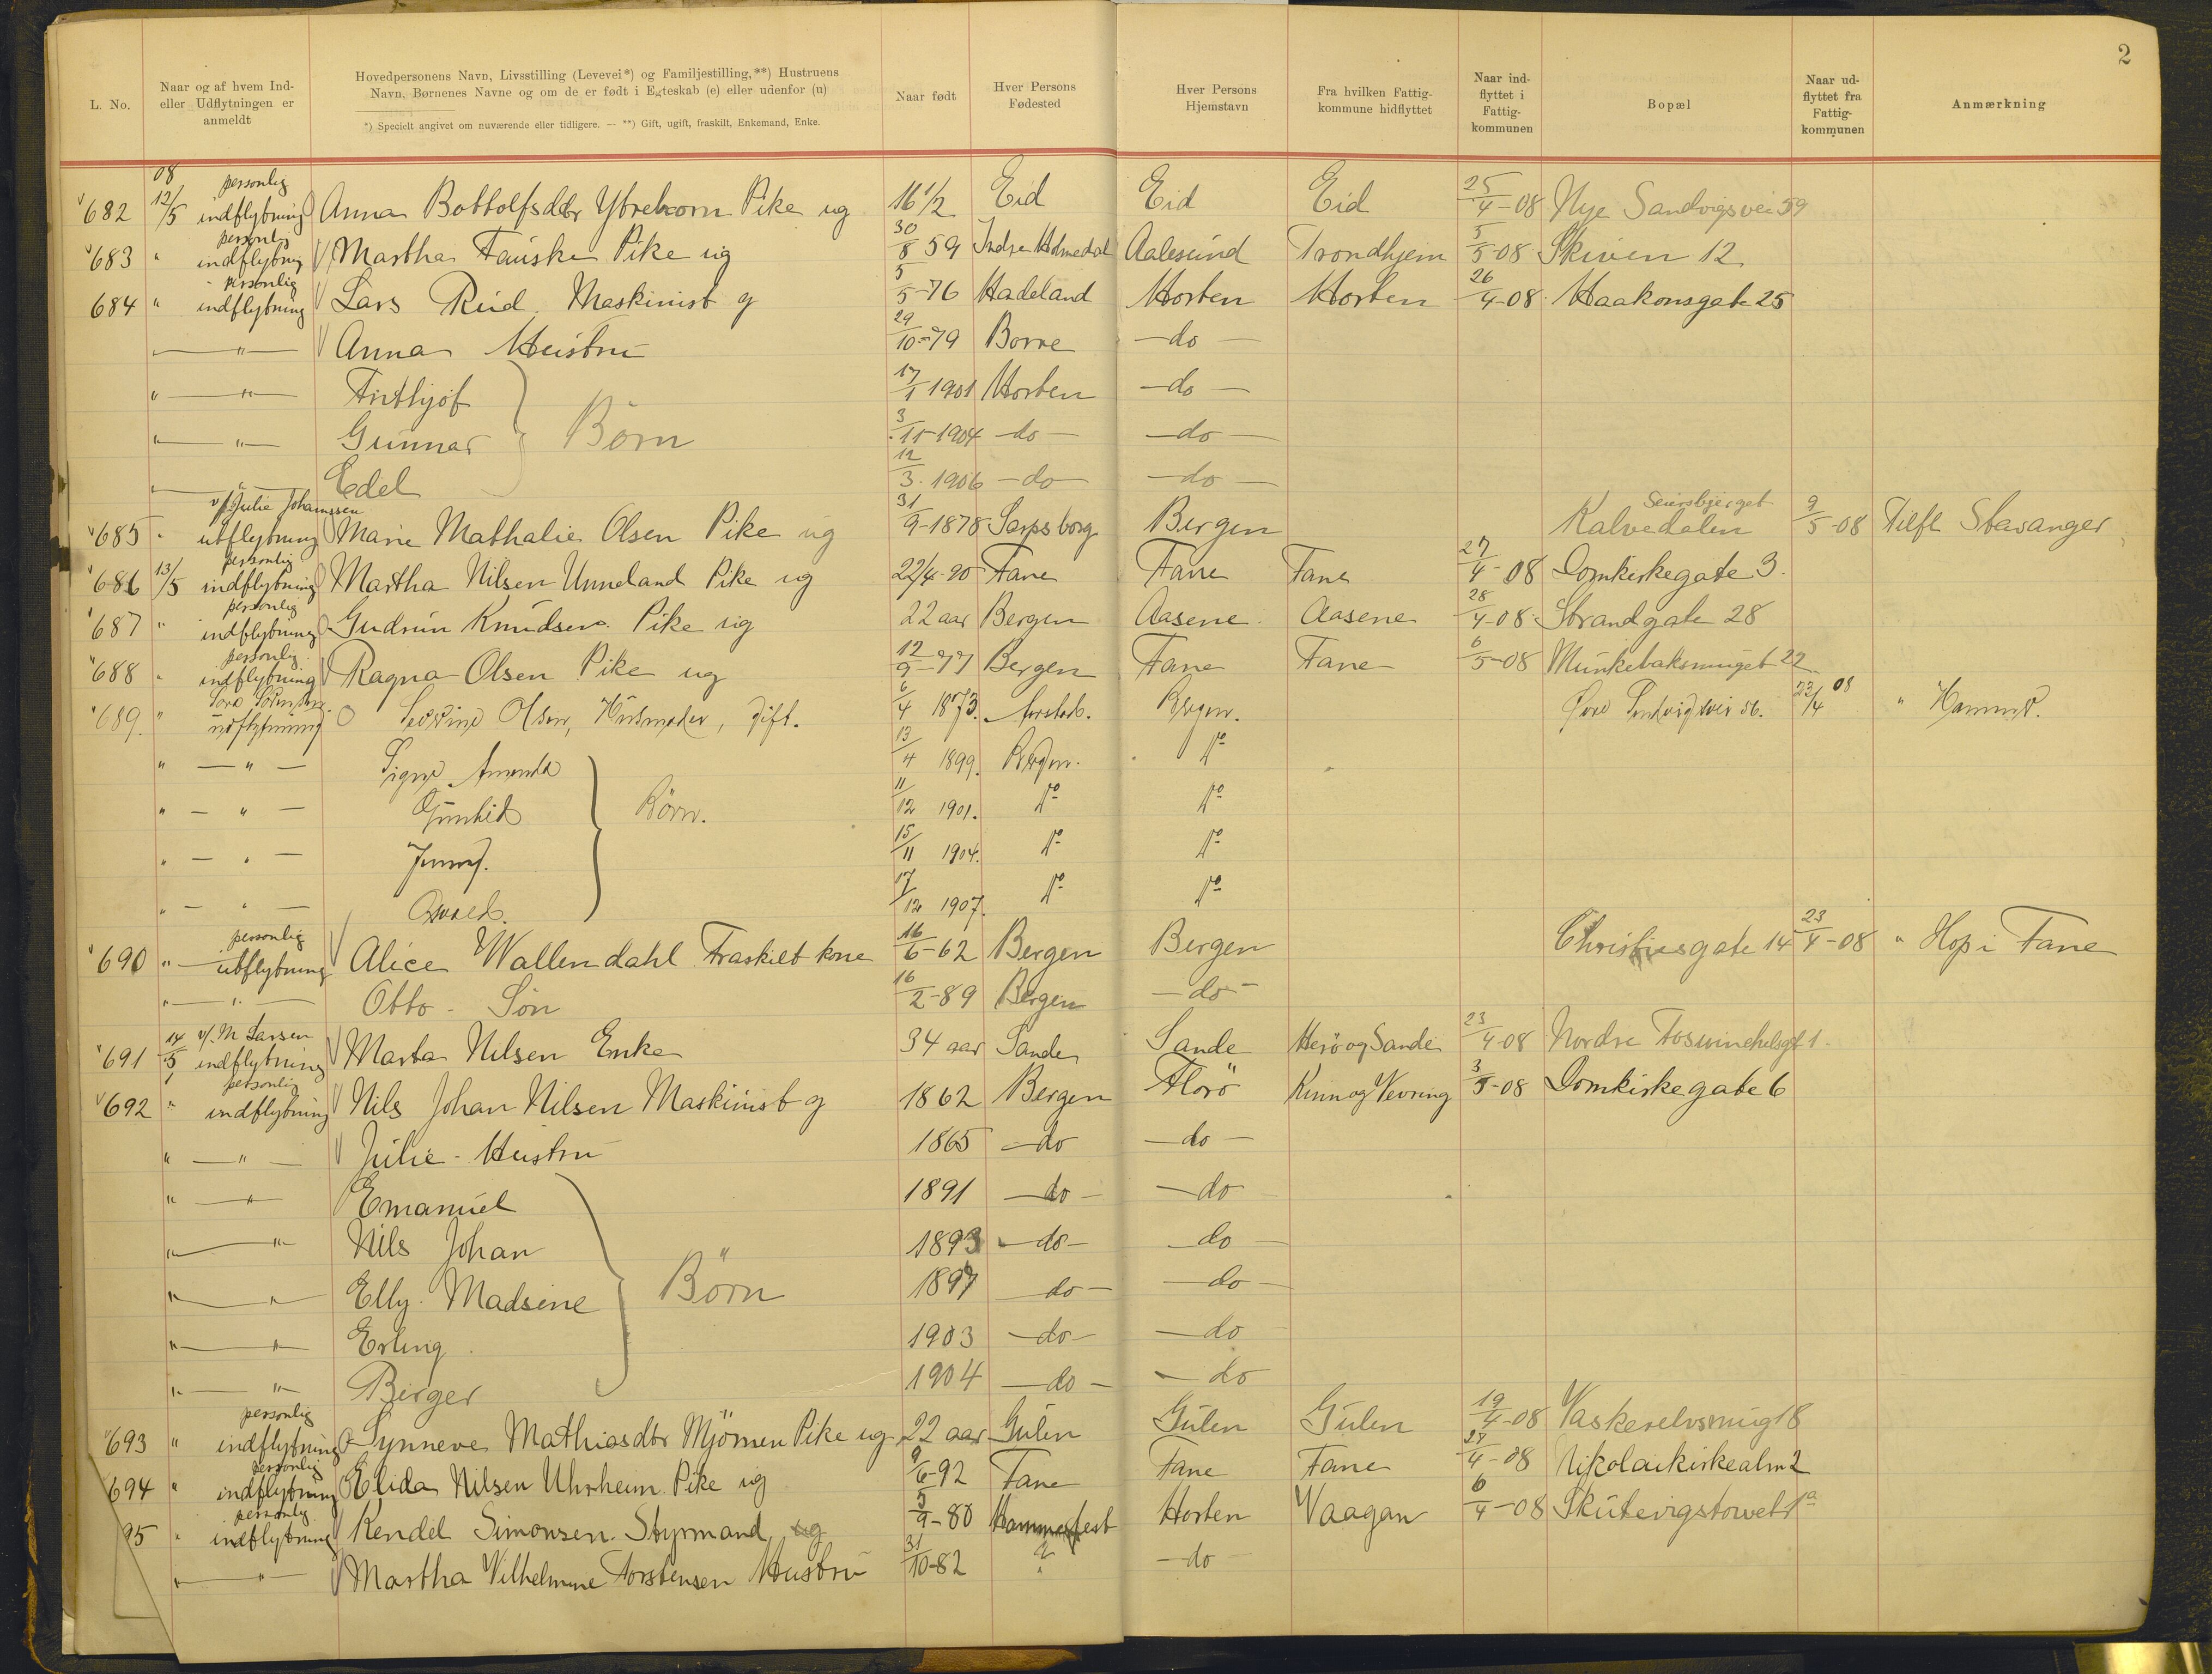 2
L. No. Naar og af hvem Ind- eller Udflytningen er anmeldt Hovedpersonens Navn, Livsstilling (Levevei*) og Familjestilling,**) Hustruens Navn, Børnenes Navne og om de er født i Egteskab (e) eller udenfor (u) Naar født Hver Persons Fødested Hver Persons Hjemstavn Fra hvilken Fattig- kommune hidflyttet Naar ind- flyttet i Fattig- kommunen Bopæl Naar ud- flyttet fra Fattig- kommunen Anmærkning
*) Specielt angivet om nuværende eller tidligere. — **) Gift, ugift, fraskilt, Enkemand, Enke.
682 08 12/5 personlig indflytning Anna Bottolfsdtr Ytrehorn Pike ug 16 1/2 Eid Eid Eid 25/4-08 Nye Sandvigsvei 59
683 " personlig indflytning Martha Fauske Pike ug 30/8 59 Indre Holmedal Aalesund Trondhjem 5/5-08 Skiven 12
684 " personlig indflytning Lars Rud. Maskinist g 5/5-76 Hadeland Horten Horten 26/4-08 Haakonsgate 25
— " — Anna Hustru 29/10-79 Borre —do—
" — " — Frithjof 17/1 1901 Horten —do—
" — " — Gunnar Börn 3/11-1904 —do— —do—
— " — Edel 12/3.1906 —do— —do—
685 " v/ Julie Johanssen utflytning Marie Mathalie Olsen Pike ug 31/9-1878 Sarpsborg Bergen Seiersbjerget Kalvedalen 9/5-08 Tilfl Stavanger
686 13/5 personlig indflytning Martha Nilsen Unneland Pike ug 22/4-90 Fane Fane Fane 27/4-08 Domkirkegate 3.
687 " personlig indflytning Gudrun Knudsen. Pike ug 22 aar Bergen Aasene Aasene 28/4-08 Strandgate 28
688 " personlig indflytning Ragna Olsen Pike ug 12/9-77 Bergen Fane Fane 6/5-08 Munkebaksmuget 22
689. " udflytning Severine Olsen, Husmoder, gift. 6/4 1873. Aarstad. Bergen. Øvre Sandvigsvei 56. 22/4 08 " Hammer.
" — " — Signe Amanda 13/4 1899. Bergen. do
" — " — Gunhild Börn. 11/12 1901. do do
" — " — 15/11 1904. do do
" — " — Osvald. 17/12 1907. do do
690 " personlig utflytning Alice Wallendahl Fraskilt kone 16/6-62 Bergen Bergen Christiesgate 14 23/4-08 " Hop i Fane
" — " — Otto - Sön 16/2-89 Bergen —do—
691 14/5 v/. M Larsen indflytning Marta Nilsen Enke 34 aar Sande Sande Herö og Sande 23/4-08 Nordre Foswinckelsgt 1.
692 " personlig indflytning Nils Johan Nilsen Maskinist g 1862 Bergen Florö Kinn og Vevring 3/5-08 Domkirkegate 6
" — " — Julie - Hustru 1865 —do —do—
" — " Emanuel 1891 —do— —do
" — " Nils Johan 1893 —do— —do—
" — " Elly Madsine Börn 1897 —do— —do—
" — " Erling 1903 —do— —do
" — " Birger 1904 —do— —do
693 " personlig indflytning Synneve Mathiasdtr Mjömen Pike ug 22 aar Gulen Gulen Gulen 19/4-08 Vaskerelvsmug 18
694 " personlig indflytning Elida Nilsen Uhrheim. Pike ug 9/6-92 Fane Fane Fane 27/4-08 Nikolaikirkealm 2
95 " personlig indflytning Kendel Simonsen. Styrmand ug 5/9-80 Hammerfest Horten Vaagan 6/4-08 Skutevigstorvet 1a
" — " — Martha Vilhelmine Torstensen Hustru 31/10-82 " —do—